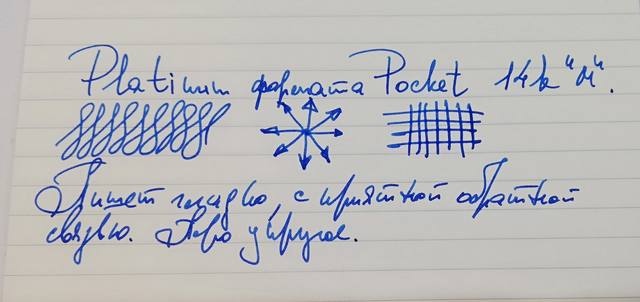 Platinum формата Pocket 14k "М".
Пишет гладко, с приятной обратной
связью. Перо упругое.